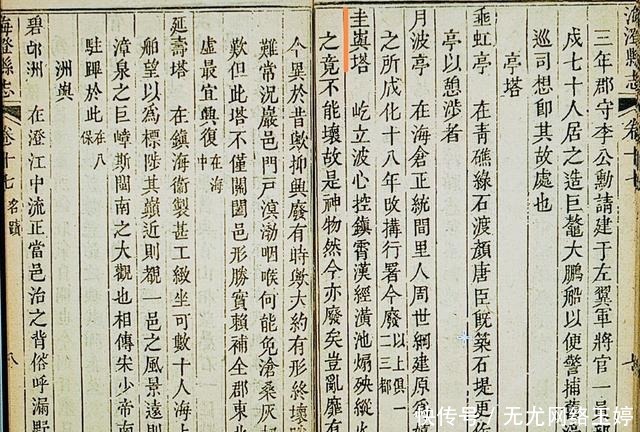 海澄縣志
卷十七
三年郡守李公勳請建于左翼軍將官一員
戍七十人居之造巨艦大鵬船以便警捕舊
巡司想即其故處也
亭塔
垂虹亭 在青礁綠石渡顏唐臣旣築石堤更作
亭以憩涉者
月波亭 在海倉正統間里人周世綱建原爲
之所成化十八年改搆行署今廢以上俱一二三都
圭嶼塔 屹立波心控鎮霄漢經潢池煽殃縱火
之竟不能壞故是神物然今亦廢矣豈亂靡有
今異於昔歟抑興廢有時歟大約有形終壞
難常況巖邑門戸溟渤咽喉何能免滄桑灰刧
歎但此塔不僅關闔邑形勝實賴補全郡東北
虛最宜興復在海中
延壽塔 在鎮海衞製甚工緻坐可數十人海上
舶望以為標陟其巔近則覩一邑之風景遠則
漳泉之巨嶂斯閩南之大觀也相傳宋少帝南
駐蹕於此在八保
洲嶼
碧邙洲 在澄江中流正當邑治之背俗呼漏野
海澄縣志
卷十七 名蹟
八
快传号/无尤网络王婷